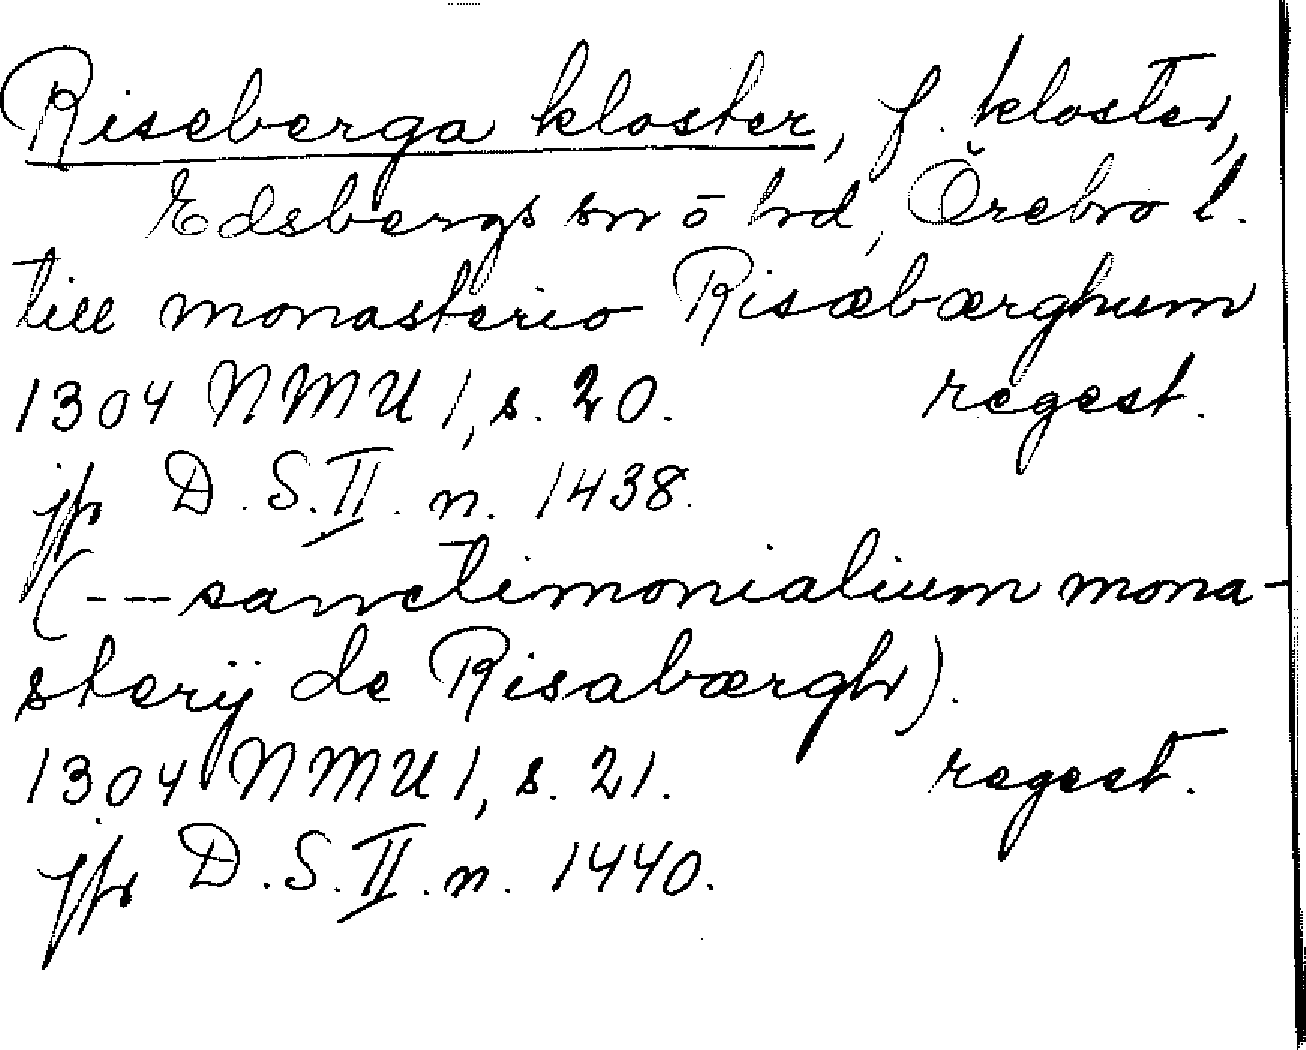 Riseberga kloster, f. kloster,
Edsbergs sn o hd, Örebro l.
till monasterio Risæbærghum
1304 NMU 1, s. 20. regest.
jfr D. S. II. n. 1438.
(--- sanctimonialium mona-
sterij de Risabærgh).
1304 NMU 1, s. 21. regest.
jfr D. S. II. n. 1440.